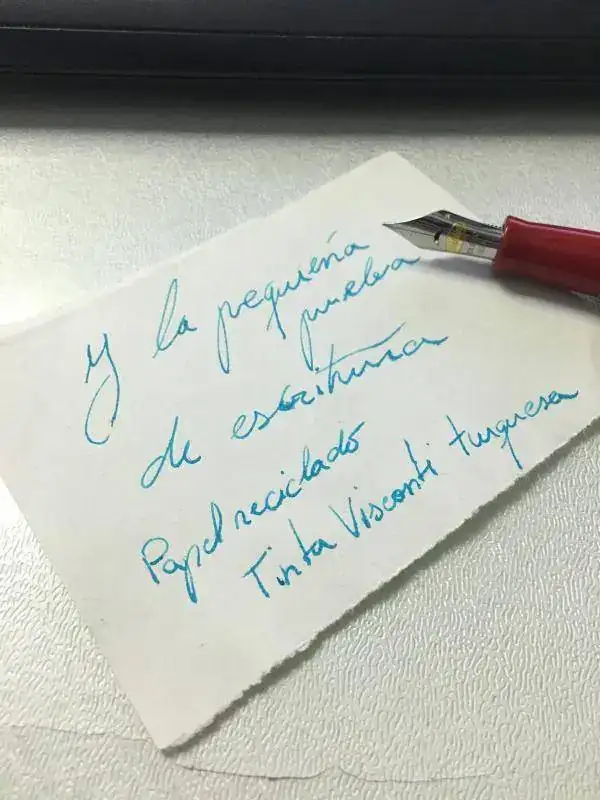 Y la pequeña
prueba
de escritura
Papel reciclado
Tinta Visconti turquesa